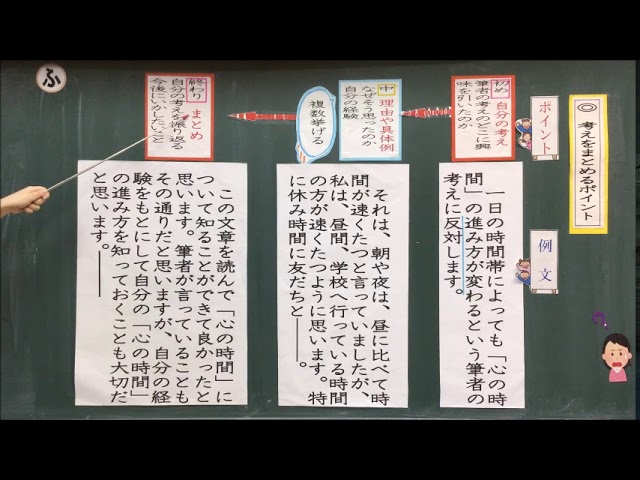 ◎ 考えをまとめるポイント
ポイント
初め 自分の考え
筆者の考えのどこに興
味を引いたのか
中 理由や具体例
なぜそう思ったのか
自分の経験
複数挙げる
終わり まとめ
自分の考えを振り返る
今後にいかしたいこと
例文
一日の時間帯によっても「心の時
間」の進み方が変わるという筆者の
考えに反対します。
それは、朝や夜は、昼に比べて時
間が速くたつと言っていましたが、
私は、昼間、学校へ行っている時間
の方が速くたつように思います。特
に休み時間に友だちと――。
この文章を読んで「心の時間」に
ついて知ることができて良かったと
思います。筆者が言っていることも
その通りだと思いますが、自分の経
験をもとにして自分の「心の時間」
の進み方を知っておくことも大切だ
と思います。――
ふ